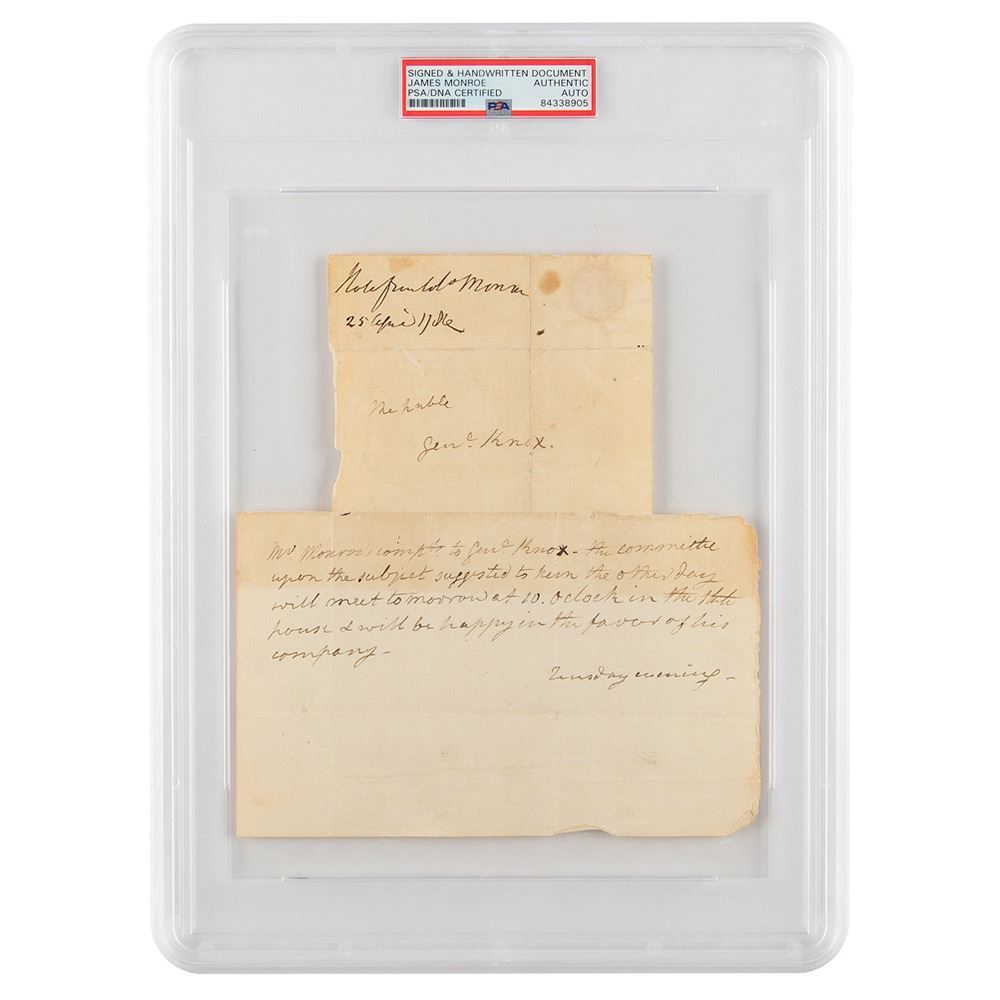 SIGNED & HANDWRITTEN DOCUMENT
JAMES MONROE AUTHENTIC
PSA/DNA CERTIFIED AUTO
PSA 84338905
Note from Monroe
25 April 1786
Genl. Knox.
Mr Monroe's compts. to Genl. Knox - the committee
upon the subject suggested to him the other day
will meet tomorrow at 10. oclock in the State
house & will be happy in the favor of his
company -
evening -